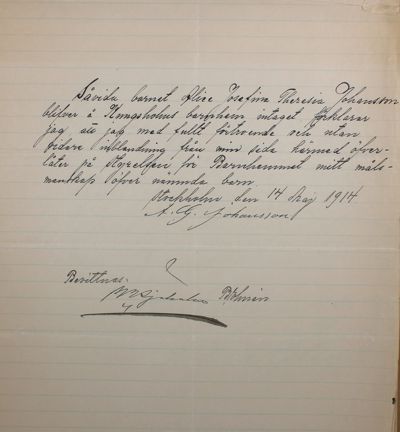 Såvida barnet Alice Josefina Theresia Johansson
blifver å Kungsholms barnhem intaget förklarar
jag att jag med fullt förtroende och utan
vidare inblandning från min sida härmed öfver-
låter på Styrelsen för Barnhemmet mitt måls-
manskap öfver nämnda barn.
Stockholm den 14 Maj 1914
A. G. Johansson
Bevittnas: